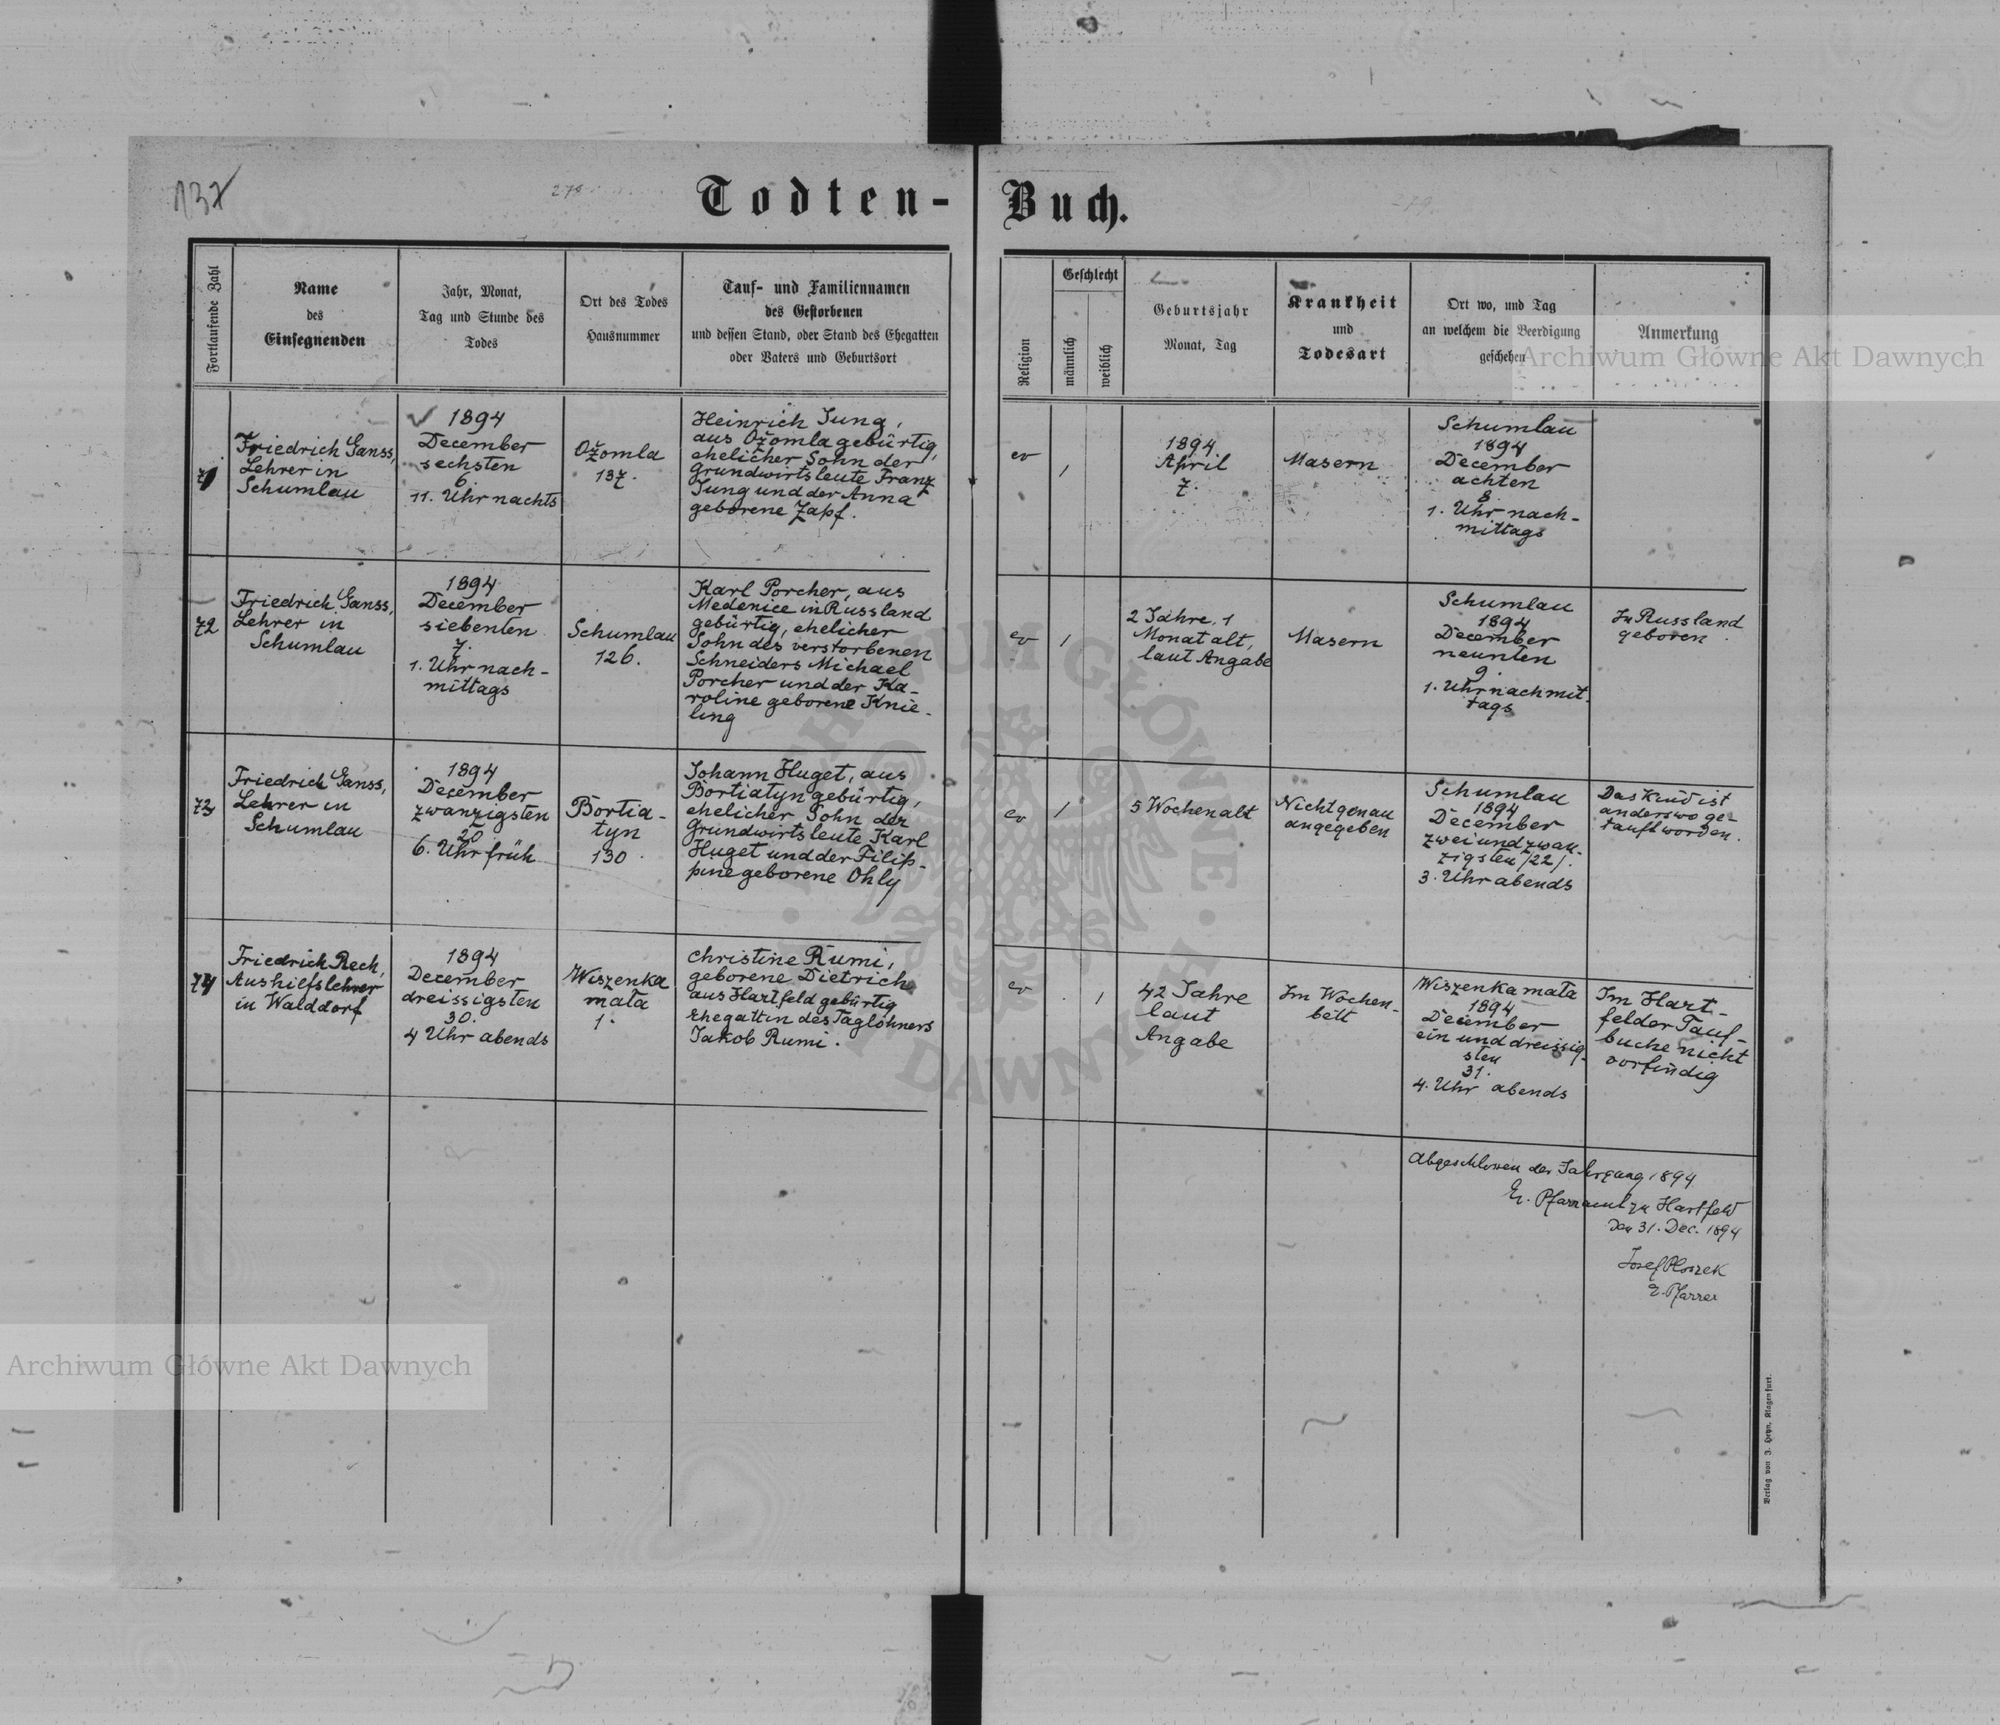 137
278
Todten-Buch.
279.
Fortlaufende Zahl
Name
des
Einsegnenden
Jahr, Monat,
Tag und Stunde des
Todes
Ort des Todes
Hausnummer
Tauf- und Familiennamen
des Gestorbenen
und dessen Stand, oder Stand des Ehegatten
oder Vaters und Geburtsort
Religion
Geschlecht
männlich
weiblich
Geburtsjahr
Monat, Tag
Krankheit
und
Todesart
Ort wo, und Tag
an welchem die Beerdigung
geschehen
Anmerkung
71
Friedrich Ganss,
Lehrer in
Schumlau
1894
December
sechsten
6.
11. Uhr nachts
Ožomla
137.
Heinrich Jung,
aus Ožomla gebürtig,
ehelicher Sohn der
Grundwirtsleute Franz
Jung und der Anna
geborene Zapf.
ev
1
1894
April
7.
Masern
Schumlau
1894
December
achten
8.
1. Uhr nach-
mittags
72
Friedrich Ganss,
Lehrer in
Schumlau
1894
December
siebenten
7.
1. Uhr nach-
mittags
Schumlau
126.
Karl Porcher, aus
Medenice in Russland
gebürtig, ehelicher
Sohn des verstorbenen
Schneiders Michael
Porcher und der Ka-
roline geborene Knie-
ling
ev
1
2 Jahre, 1
Monat alt,
laut Angabe
Masern
Schumlau
1894
December
neunten
9.
1. Uhr nachmit-
tags
In Russland
geboren.
73
Friedrich Ganss,
Lehrer in
Schumlau
1894
December
zwanzigsten
20
6. Uhr früh
Bortia-
tyn
130.
Johann Huget, aus
Bortiatyn gebürtig,
ehelicher Sohn der
Grundwirtsleute Karl
Huget und der Filip-
pine geborene Ohly
ev
1
5 Wochen alt
Nicht genau
angegeben
Schumlau
1894
December
zwei und zwan-
zigsten /22/.
3. Uhr abends
Das Kind ist
anderswo ge-
tauft worden.
74
Friedrich Rech,
Aushilfslehrer
in Walddorf
1894
December
dreissigsten
30.
4 Uhr abends
Wiszenka
mała
1.
Christine Rumi,
geborene Dietrich
aus Hartfeld gebürtig
Ehegattin des Taglöhners
Jakob Rumi.
ev
1
42 Jahre
laut
Angabe
Im Wochen-
bett
Wiszenka mała
1894
December
ein und dreissig-
sten
31.
4. Uhr abends
Im Hart-
felder Tauf-
buche nicht
vorfindig
Abgeschlossen der Jahrgang 1894
Ev. Pfarramt zu Hartfeld
den 31. Dec. 1894
Josef Ploszek
E. Pfarrer
Verlag von J. Heyn, Klagenfurt.
Archiwum Główne Akt Dawnych
ARCHIWUM GŁÓWNE · AKT DAWNYCH ·
Archiwum Główne Akt Dawnych